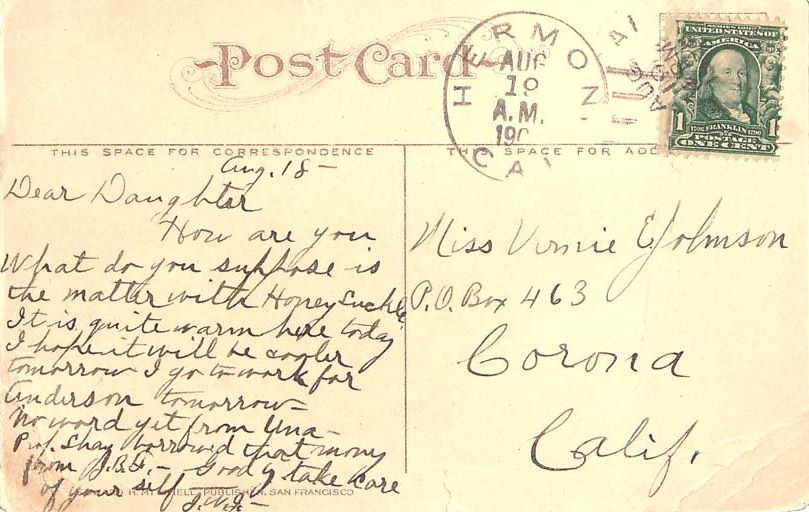 Post Card
HERMON
AUG
19
A.M.
190
CAL
AUG
SERIES 1902
UNITED STATES OF
AMERICA
1706 FRANKLIN 1790
1 1
POSTAGE
ONE CENT
THIS SPACE FOR CORRESPONDENCE
THIS SPACE FOR ADD
Aug. 18 -
Dear Daughter
How are you.
What do you suppose is
the matter with Honey Suckle.
It is quite warm here today
I hope it will be cooler
tomorrow I go to work for
Anderson tomorrow -
No word yet from Una -
Prof. Shay borrowed that mony
from J.B.G. - Good by take care
of your self
Miss Vernie E Johnson
P.O. Box 463
Corona
Calif.
H. MITCHELL, PUBLISHER, SAN FRANCISCO